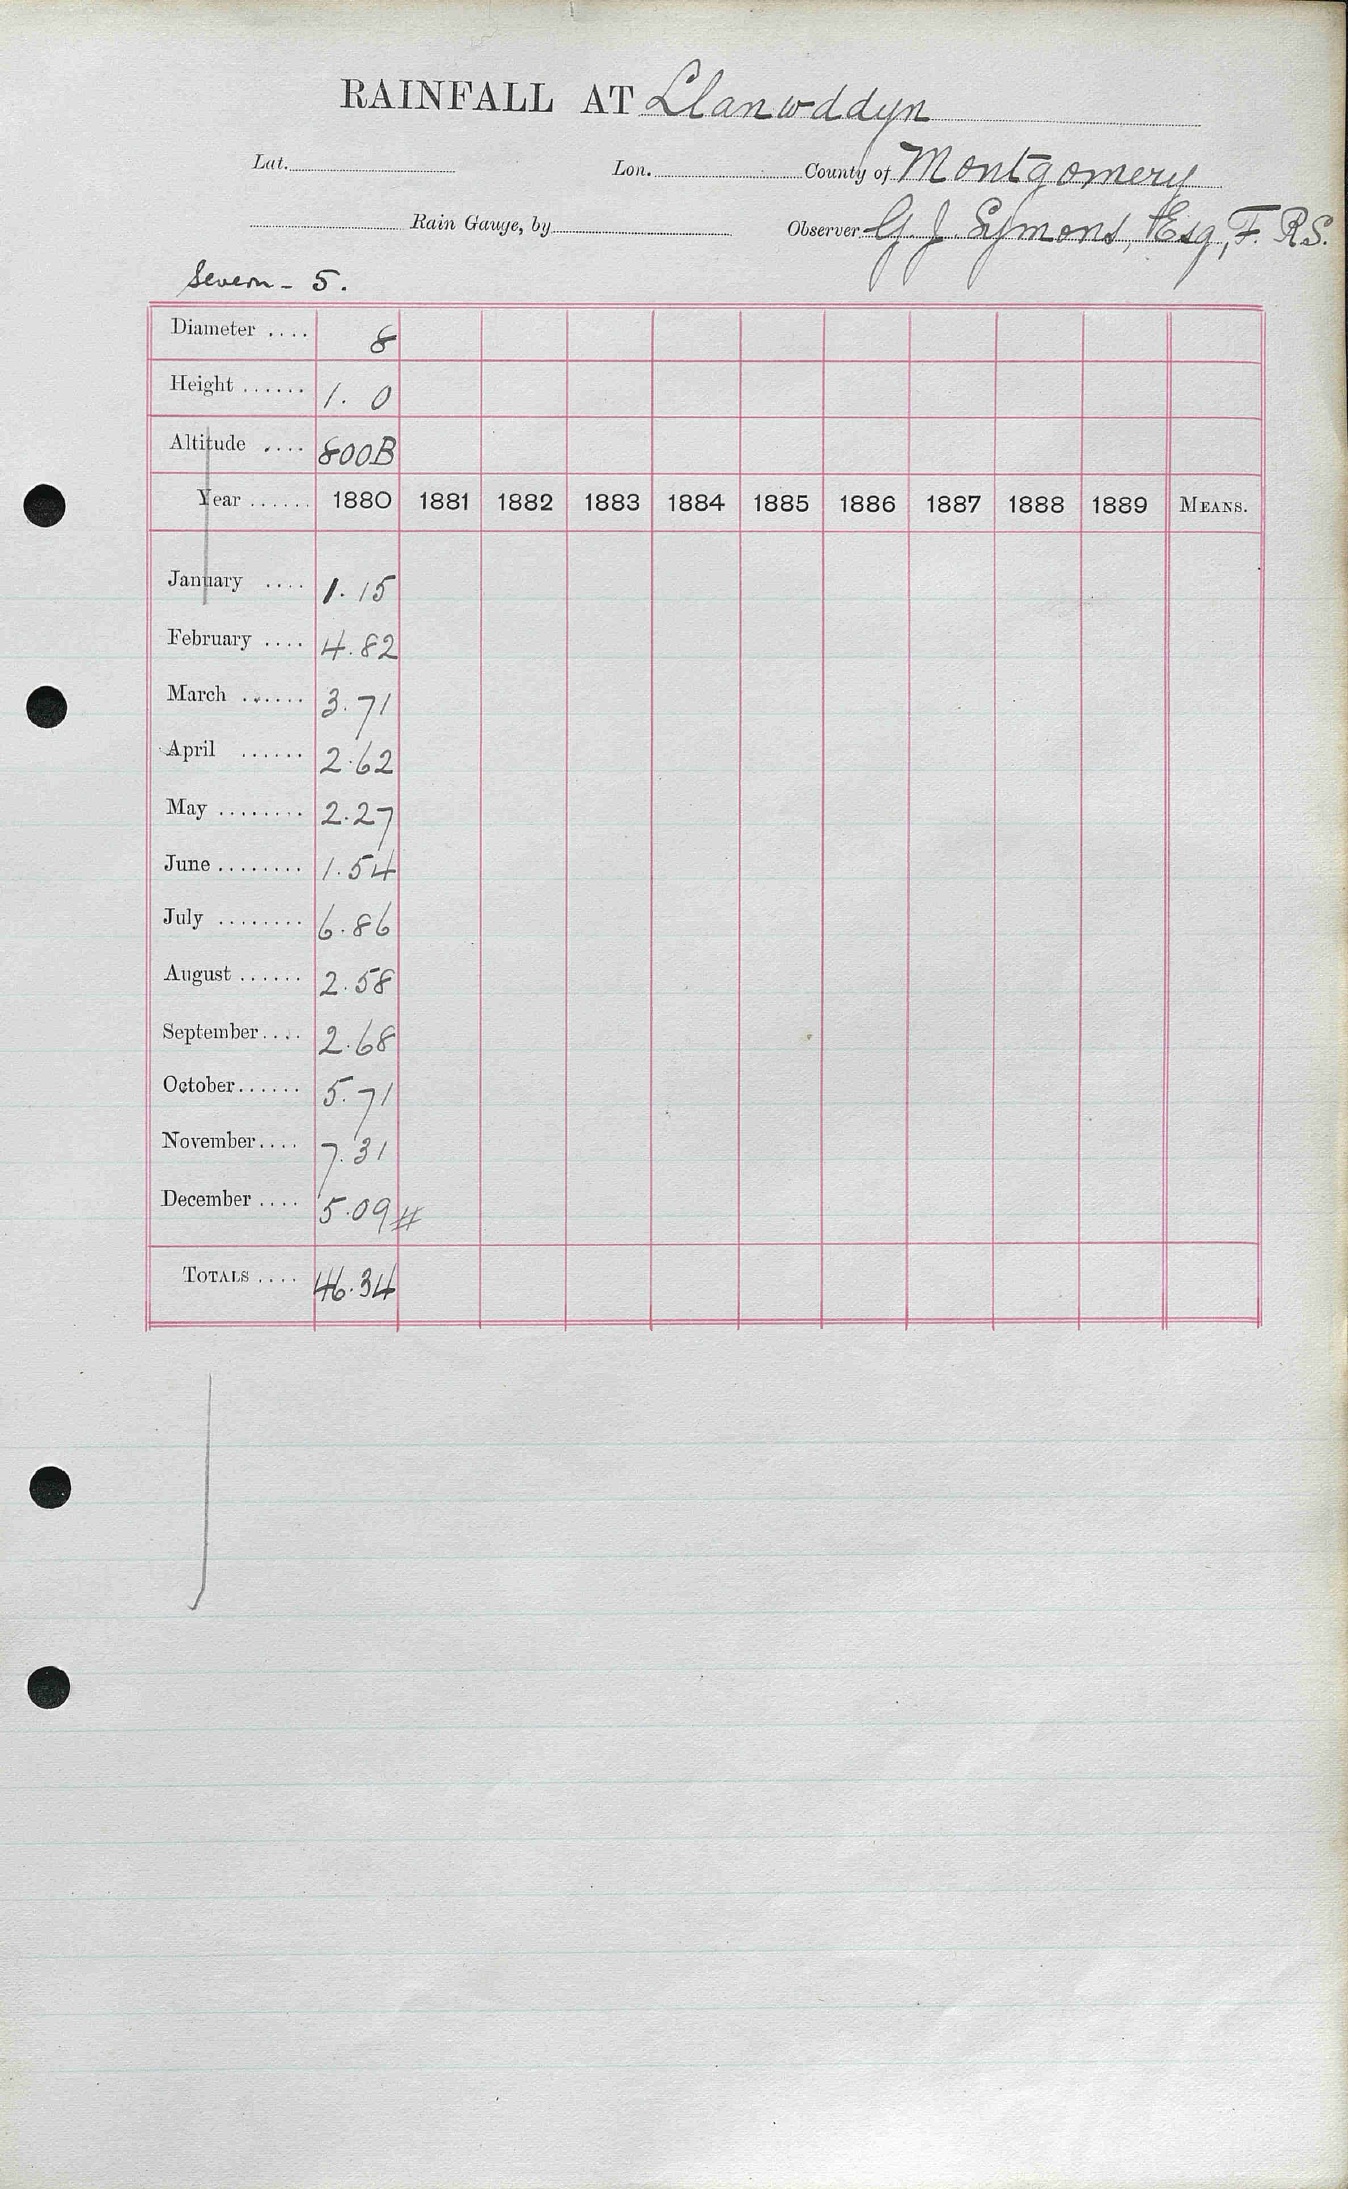 RAINFALL AT Llanwddyn
Lat. Lon. County of Montgomery
Rain Gauge, by Observer G. J. Symons, Esq., F. R.S.
Severn - 5.
Diameter .... 8
Height ...... 1. 0
Altitude .... 800B
Year ...... 1880 1881 1882 1883 1884 1885 1886 1887 1888 1889 MEANS.
January .... 1.15
February .... 4.82
March ...... 3.71
April ...... 2.62
May ........ 2.27
June ........ 1.54
July ........ 6.86
August ...... 2.58
September .... 2.68
October ...... 5.71
November .... 7.31
December .... 5.09 #
TOTALS .... 46.34